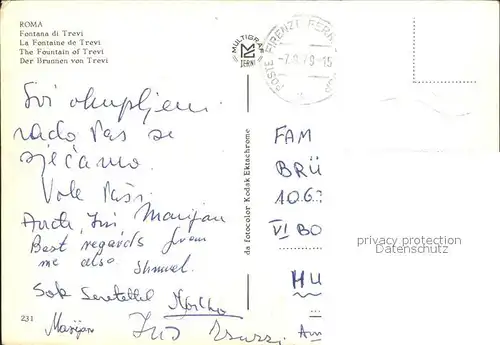 ROMA
Fontana di Trevi
La Fontaine de Trevi
The Fountain of Trevi
Der Brunnen von Trevi
MULTIGRAF
TERNI
POSTE FIRENZE FERR
da fotocolor Kodak Ektachrome
Svi okupljeni
rado Vas se
sjećamo.
Vole Vaši
Marijan
Best regards from
me also Shmuel.
Sok szeretettel
231
Marijan
FAM
BRÜ
10.6.
VI BO
HU
privacy protection
Datenschutz